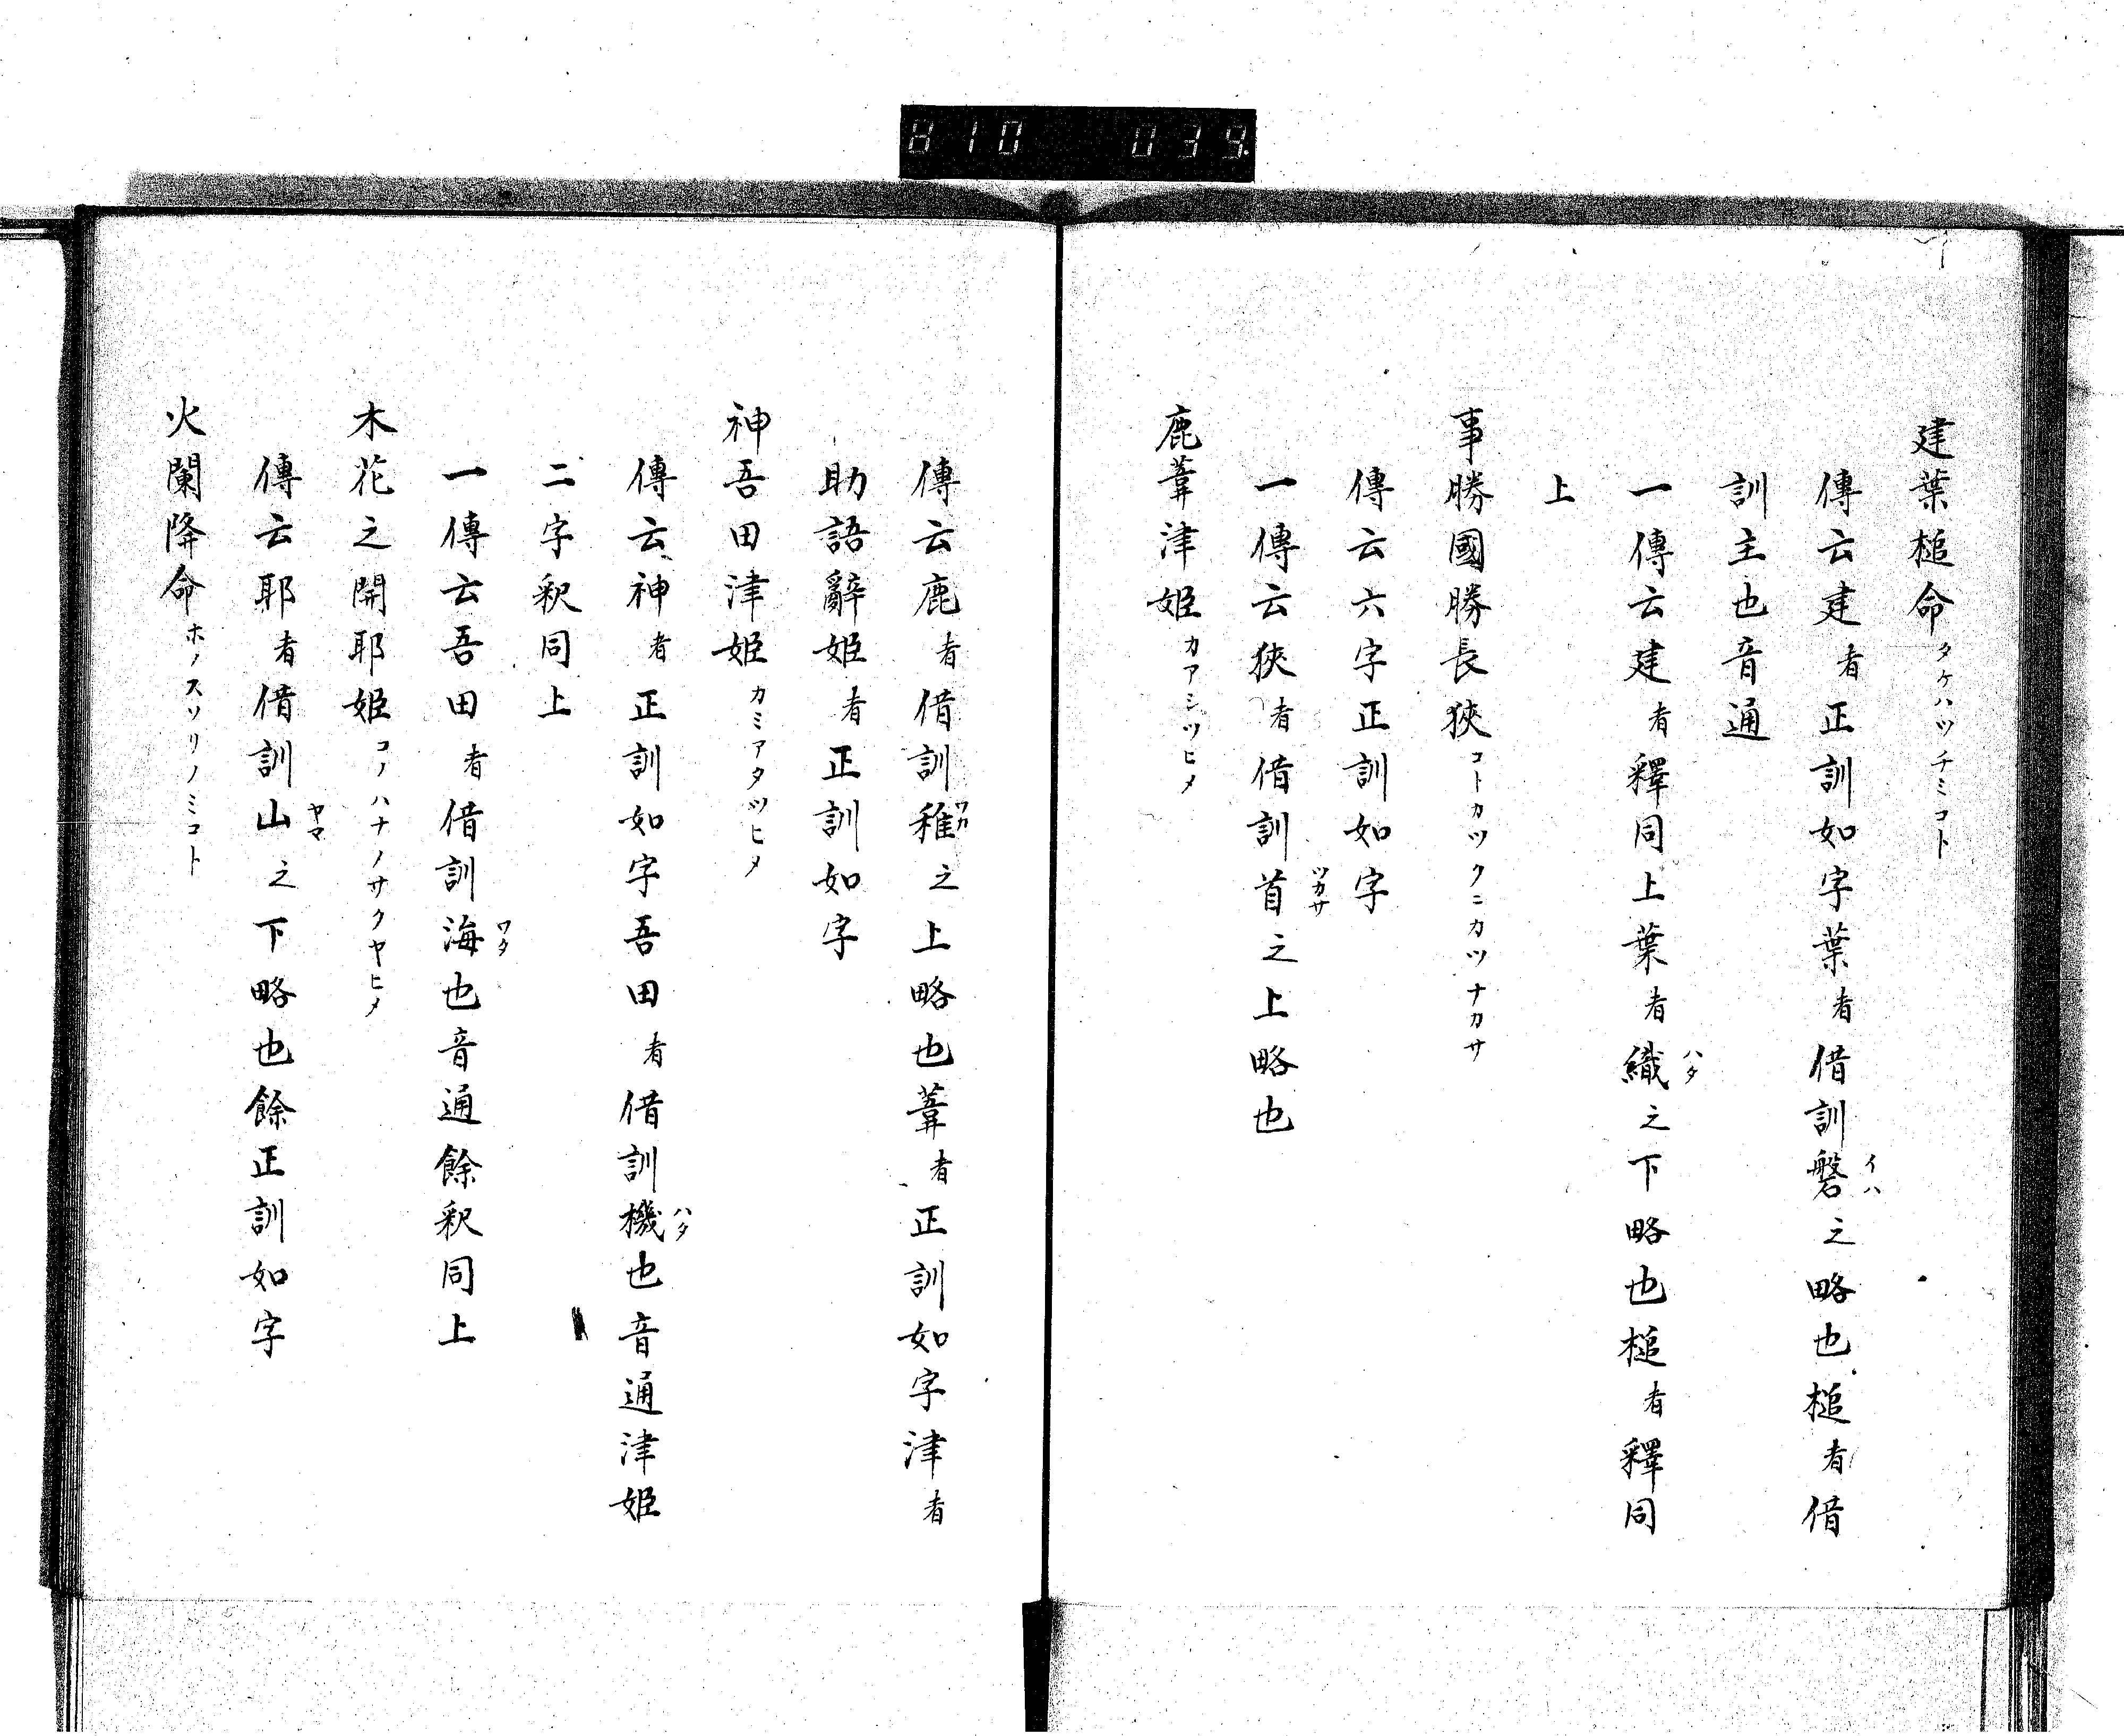 810 039
建葉槌命タケハツチミコト
傳云建者正訓如字葉者借訓磐イハ之略也槌者借
訓主也音通
一傳云建者釋同上葉者織ハタ之下略也槌者釋同
上
事勝國勝長狹コトカツクニカツナカサ
傳云六字正訓如字
一傳云狹者借訓首ツカサ之上略也
鹿葦津姫カアシツヒメ
傳云鹿者借訓稚ワカ之上略也葦者正訓如字津者
助語辭姫者正訓如字
神吾田津姫カミアタツヒメ
傳云神者正訓如字吾田者借訓機ハタ也音通津姫
二字釈同上
一傳云吾田者借訓海ワタ也音通餘釈同上
木花之開耶姫コノハナノサクヤヒメ
傳云耶者借訓山ヤマ之下略也餘正訓如字
火闌降命ホノスソリノミコト